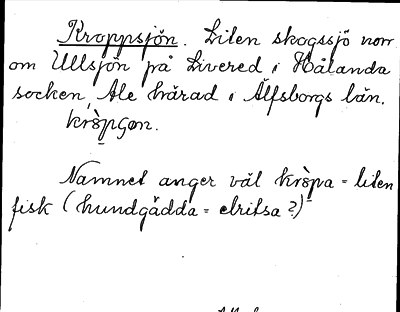 Kroppsjön. Liten skogssjö norr
om Ullsjön på Livered i Hålanda
socken, Ale härad i Älfsborgs län.
krö̀pʃɷn.
Namnet anger väl krö̀pa = liten
fisk (hundgädda = elritsa?)